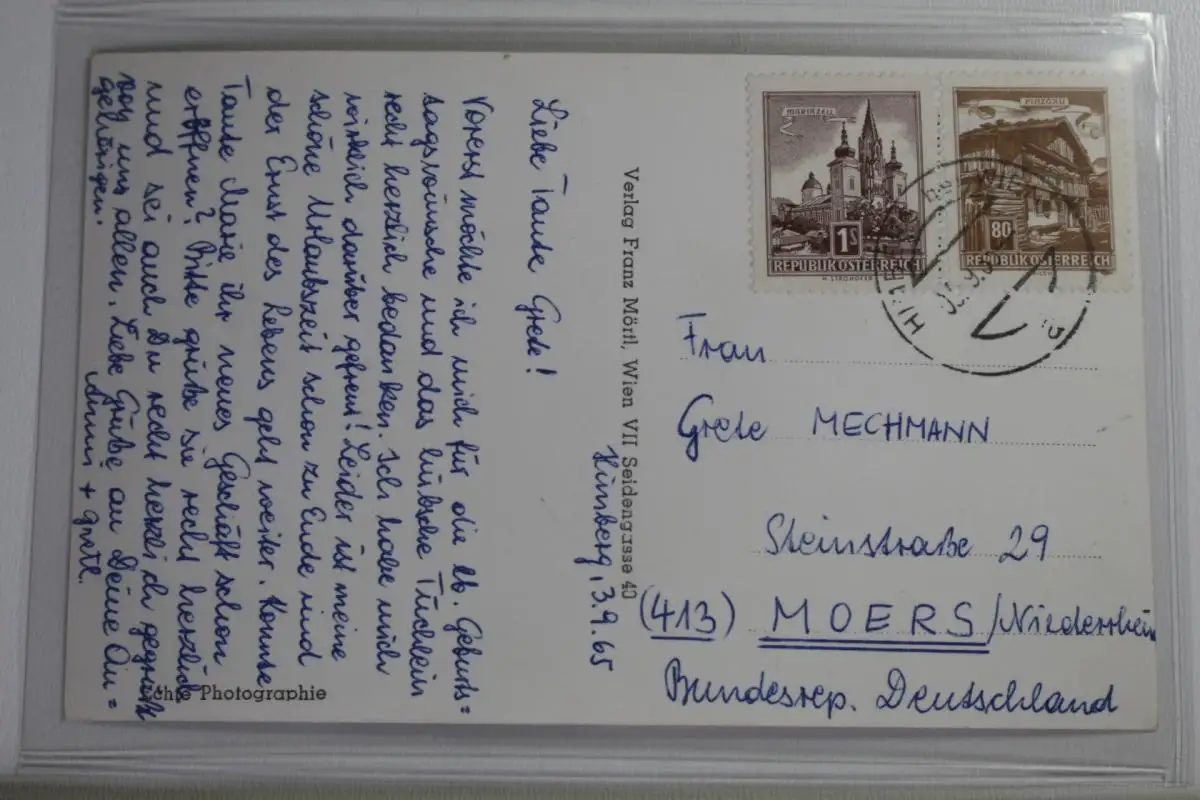 Himberg, 3.9.65
Liebe Tante Grete!
Vorerst möchte ich mich für die lb. Geburts=
tagswünsche und das hübsche Tüchlein
recht herzlich bedanken. Ich habe mich
wirklich darüber gefreut! Leider ist meine
schöne Urlaubszeit schon zu Ende und
der Ernst des Lebens geht weiter. Konnte
Tante Marie ihr neues Geschäft schon
eröffnen? Bitte grüße sie recht herzlich
und sei auch Du recht herzlich gegrüßt
von uns allen. Liebe Grüße an Deine
gehörigen.
Anni + Gretl.
Echte Photographie
Verlag Franz Mörtl, Wien VII Seidengasse 40
MARIAZELL
1S
REPUBLIK ÖSTERREICH
PINZGAU
80
REPUBLIK ÖSTERREICH
Frau
Grete MECHMANN
Steinstraße 29
(413) MOERS/Niederrhein
Bundesrep. Deutschland